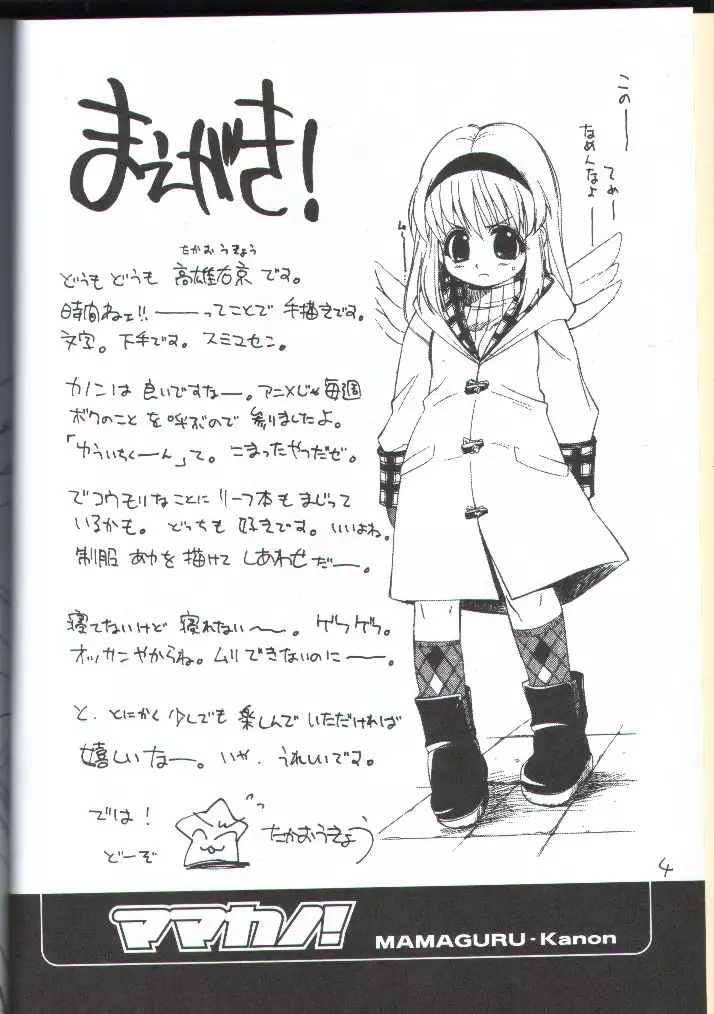 まえがき!
たかおうきょう
どうも どうも 高雄右京 です。
時間ねェ!!――ってことで 手描きです。
文字。下手です。スミマセン。
カノンは 良いですなー。アニメじゃ毎週
ボクのこと を呼ぶので 参りましたよ。
「ゆういちくーん」て。こまったやつだぜ。
でコウモリなことに リーフ本も まじって
いるかも。どっちも 好きです。いいよね。
制服 あかりを 描けて しあわせだー。
寝てないけど 寝れない―。ゲフゲフ。
オッサンやからね。ムリできないのに―。
と、とにかく 少しでも 楽しんで いただければ
嬉しいなー。いや、うれしいです。
では!
どーぞ
たかおうきょう
この――
てめー――
なめんなよ――
む~
4
ママカノ!
MAMAGURU-Kanon